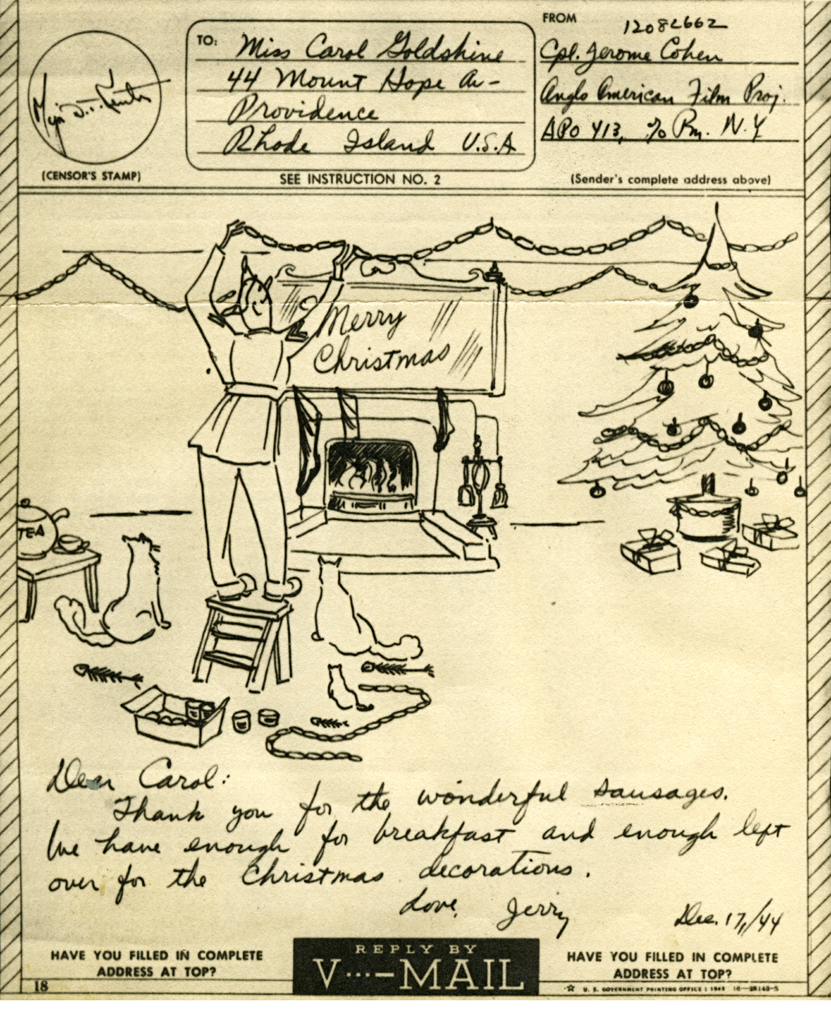 12082662
FROM
TO: Miss Carol Goldshine
44 Mount Hope Av-
Providence
Rhode Island U.S.A
Cpl. Jerome Cohen
Anglo American Film Proj.
APO 413, % Pm. N.Y
(CENSOR'S STAMP)
SEE INSTRUCTION NO. 2
(Sender's complete address above)
Merry
Christmas
TEA
Dear Carol:
Thank you for the wonderful sausages.
We have enough for breakfast and enough left
over for the Christmas decorations.
Love, Jerry
Dec. 17,/44
HAVE YOU FILLED IN COMPLETE
ADDRESS AT TOP?
REPLY BY
V···—MAIL
HAVE YOU FILLED IN COMPLETE
ADDRESS AT TOP?
18
☆ U. S. GOVERNMENT PRINTING OFFICE : 1943 16—28143-5